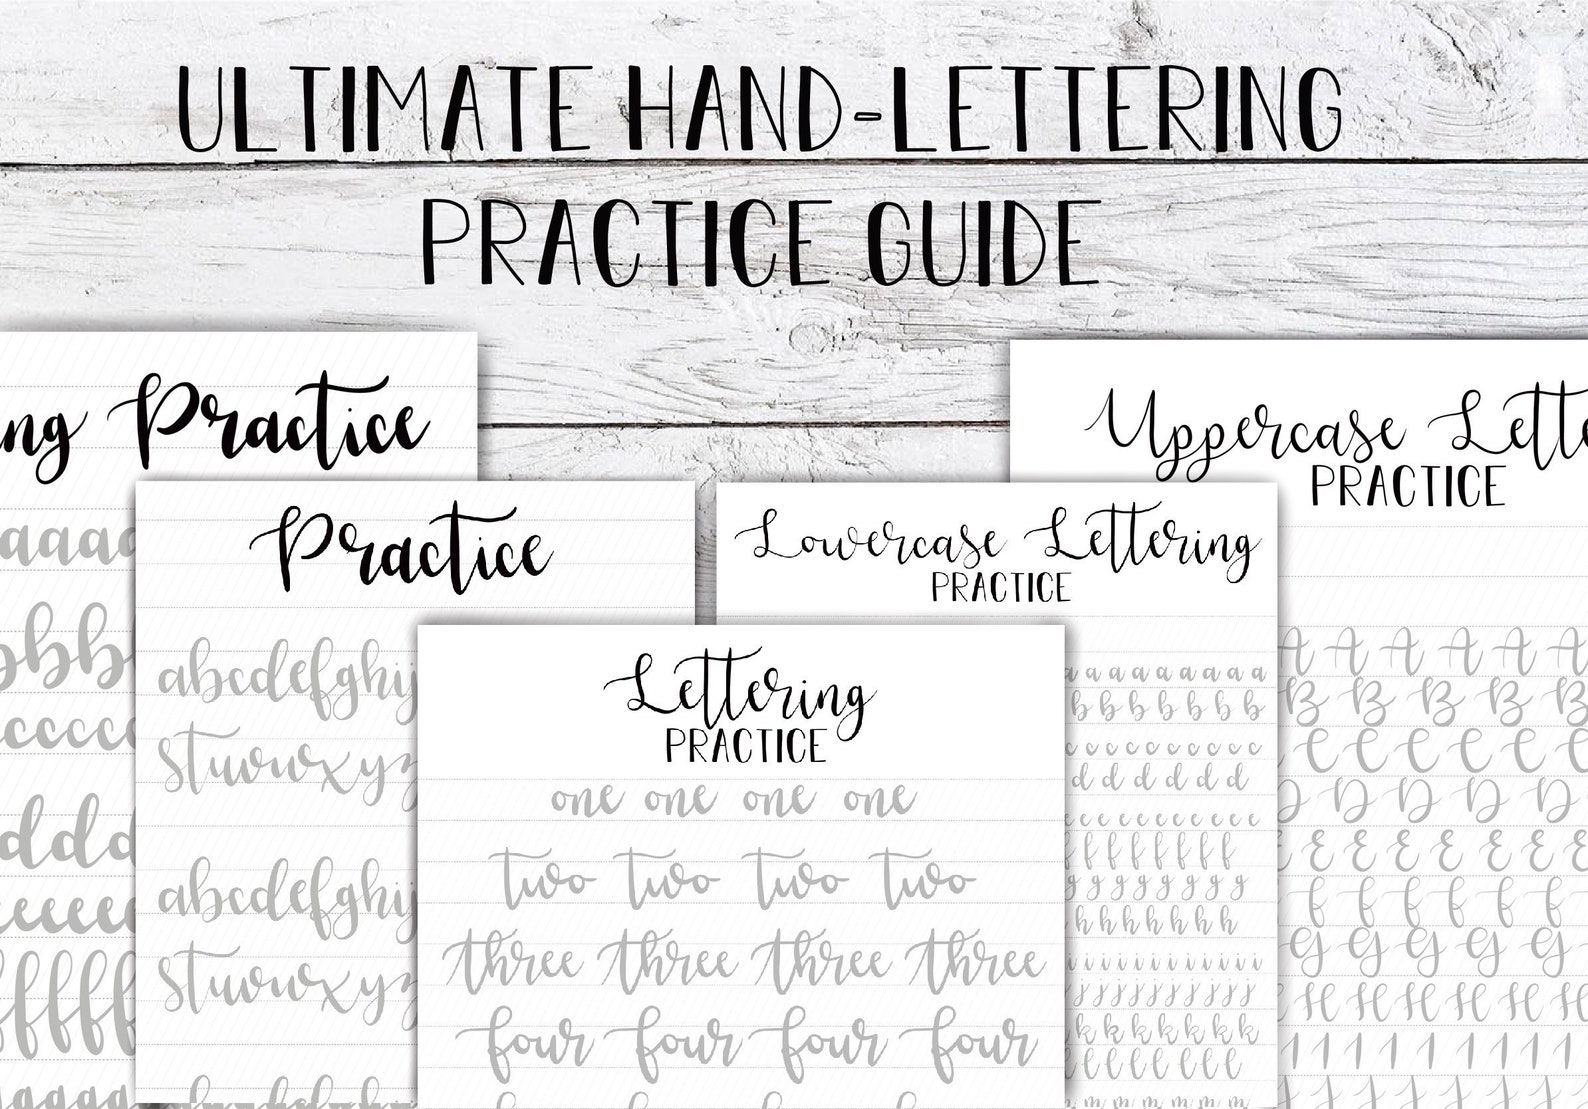 ULTIMATE HAND-LETTERING
PRACTICE GUIDE
ng Practice
aaaa
bbb
cccc
ddd
eeeee
ffff
Practice
abcdefghij
stuvwxyz
abcdefghij
stuvwxyz
Lettering
PRACTICE
one one one one
two two two two
three three three three
four four four four
Lowercase Lettering
PRACTICE
a a a a a a a a
b b b b b b b
c c c c c c c c
d d d d d d d
e e e e e e e e
f f f f f f f
g g g g g g g
h h h h h h h
i i i i i i i i i
j j j j j j j j
k k k k k k k
l l l l l l l
m m m m m m
Uppercase Lette
PRACTICE
A A A A A A
B B B B B B
C C C C C C
D D D D D D
E E E E E E E
F F F F F F
G G G G G G
H H H H H H